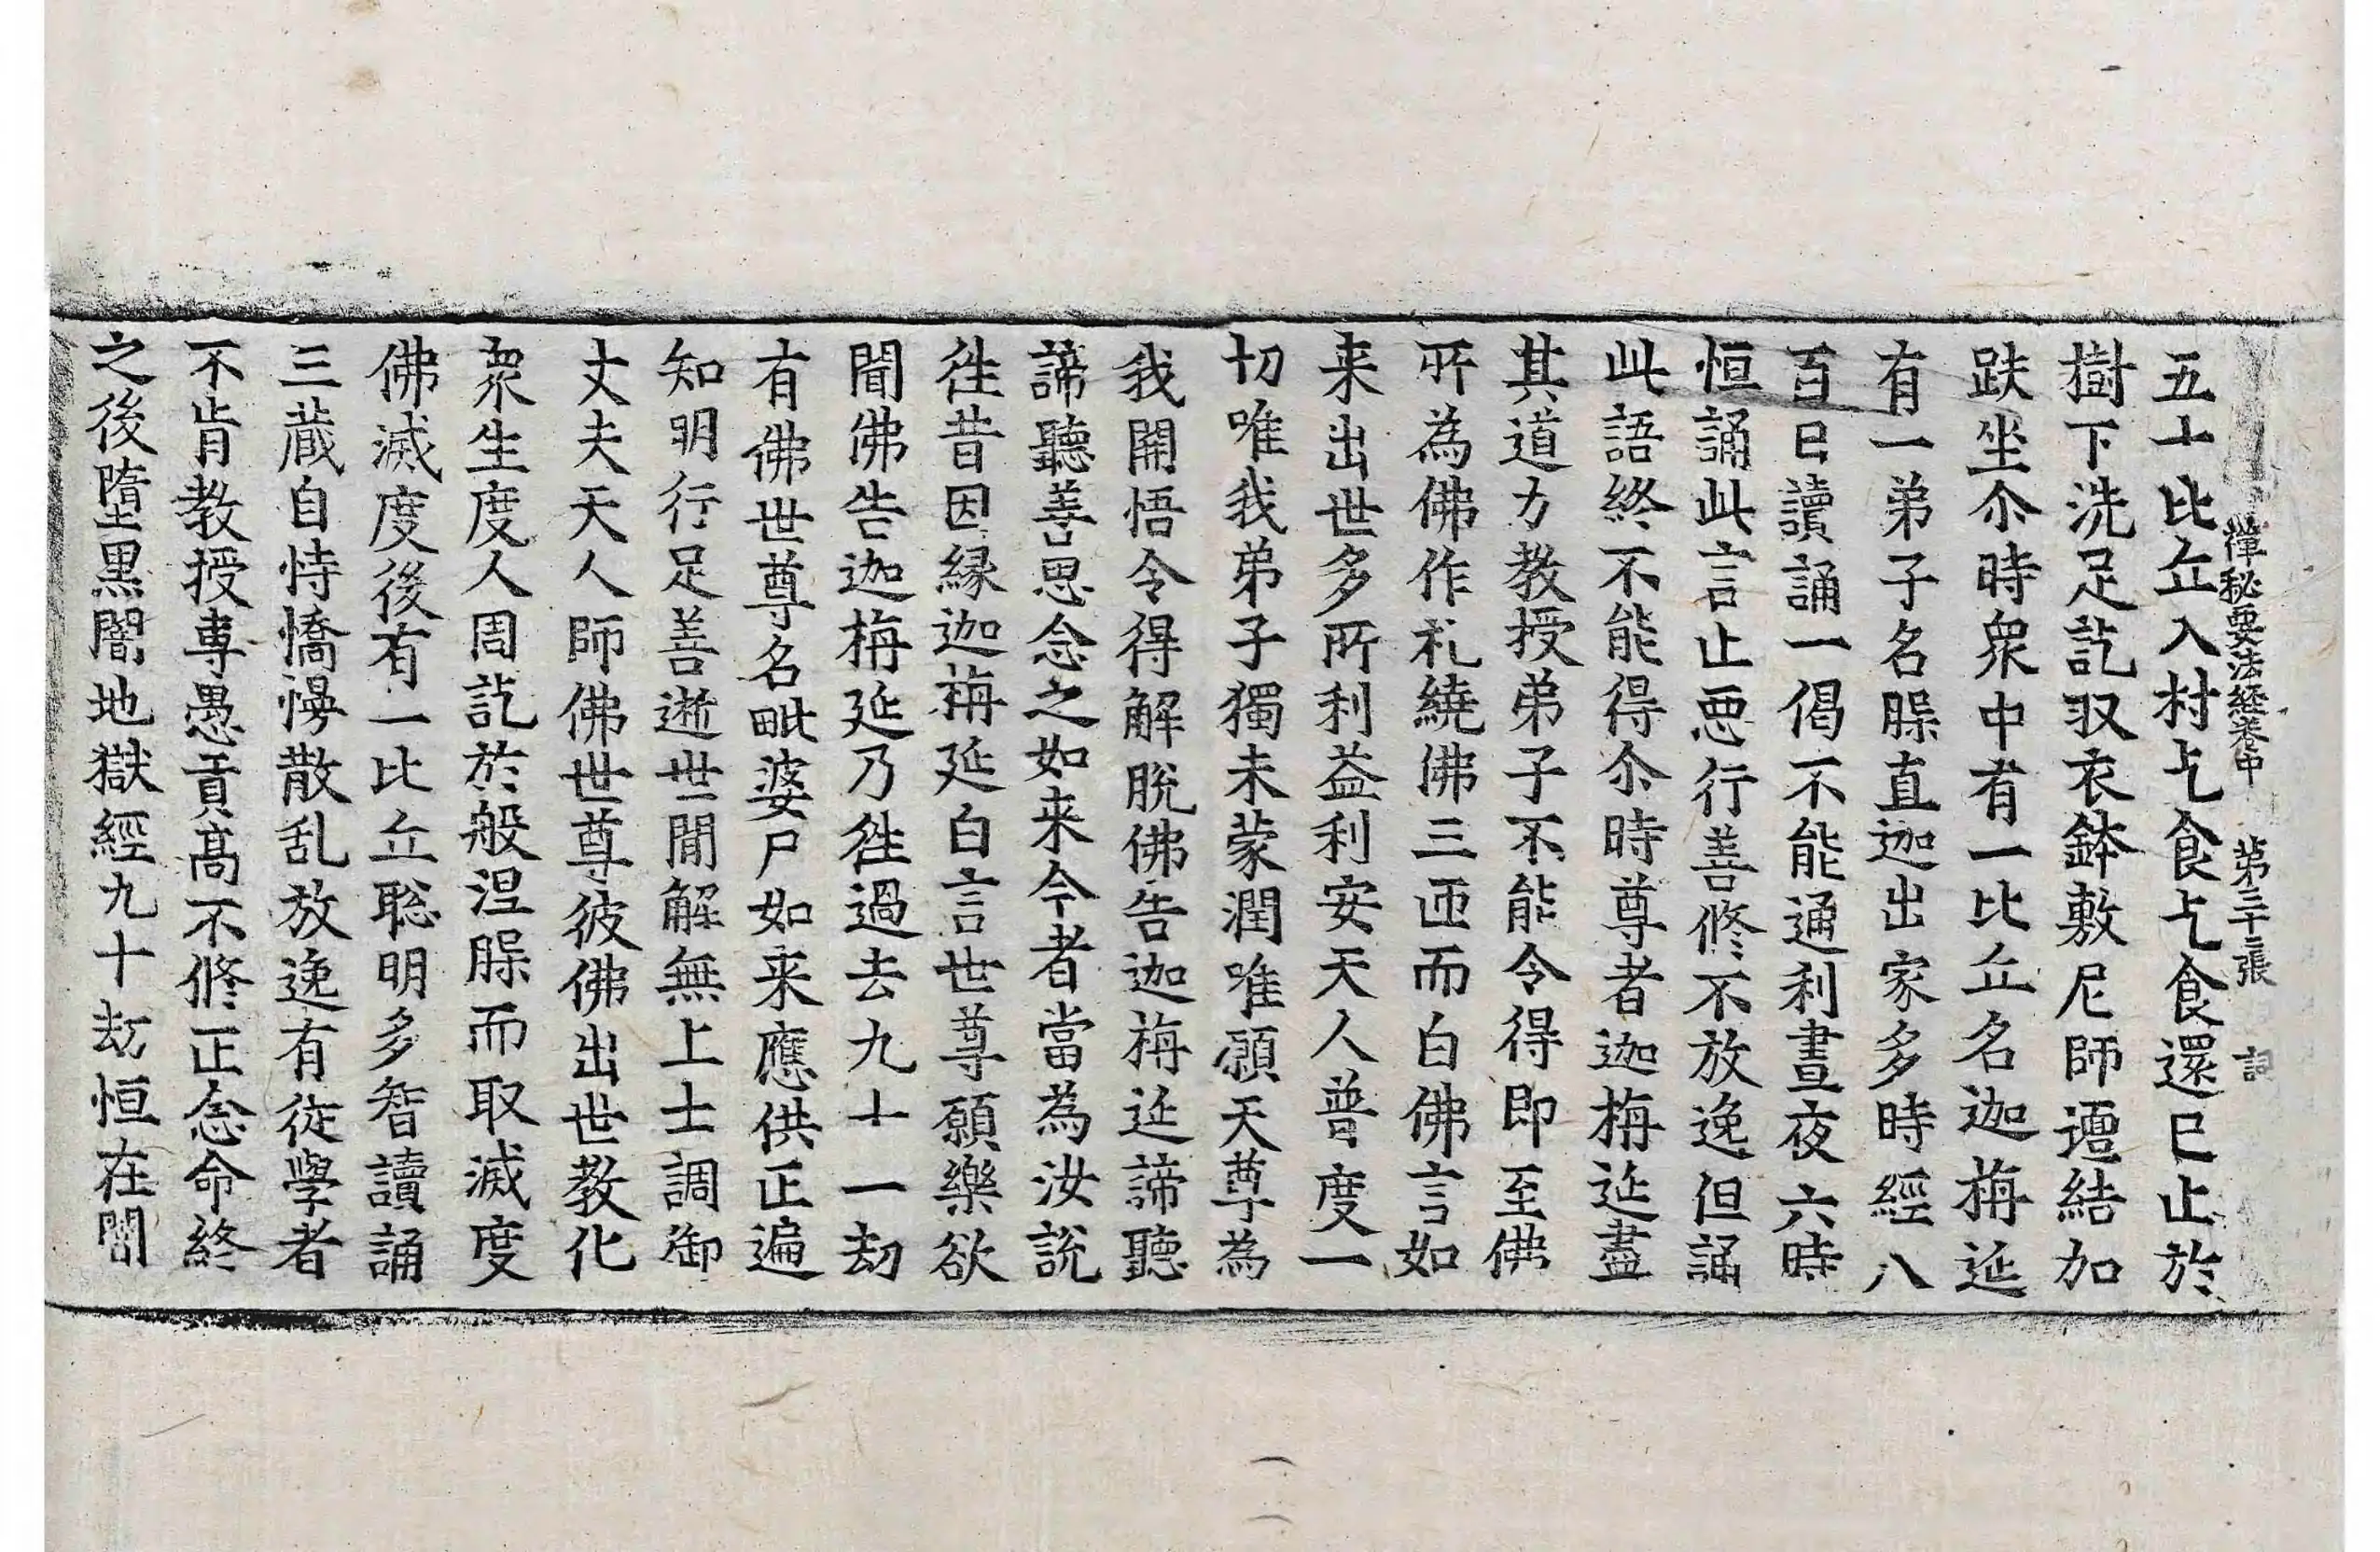 禪秘要法經卷中 第三十二張 詞
五十比丘入村乞食乞食還已止於
樹下洗足訖収衣鉢敷尼師壇結加
趺坐尒時衆中有一比丘名迦栴延
有一弟子名㬋直迦出家多時經八
百日讀誦一偈不能通利晝夜六時
恒誦此言止惡行善修不放逸但誦
此語終不能得尒時尊者迦栴延盡
其道力教授弟子不能令得即至佛
所為佛作礼繞佛三匝而白佛言如
来出世多所利益利安天人普度一
切唯我弟子獨未蒙潤唯願天尊為
我開悟令得解脫佛告迦栴延諦聽
諦聽善思念之如来今者當為汝說
徃昔因緣迦栴延白言世尊願樂欲
聞佛告迦栴延乃徃過去九十一劫
有佛世尊名毗婆尸如来應供正遍
知明行足善逝世間解無上士調御
丈夫天人師佛世尊彼佛出世教化
衆生度人周訖於般涅㬋而取滅度
佛滅度後有一比丘聡明多智讀誦
三藏自恃憍慢散乱放逸有從學者
不肯教授專愚貢髙不修正念命終
之後墮黒闇地獄經九十劫恒在闇